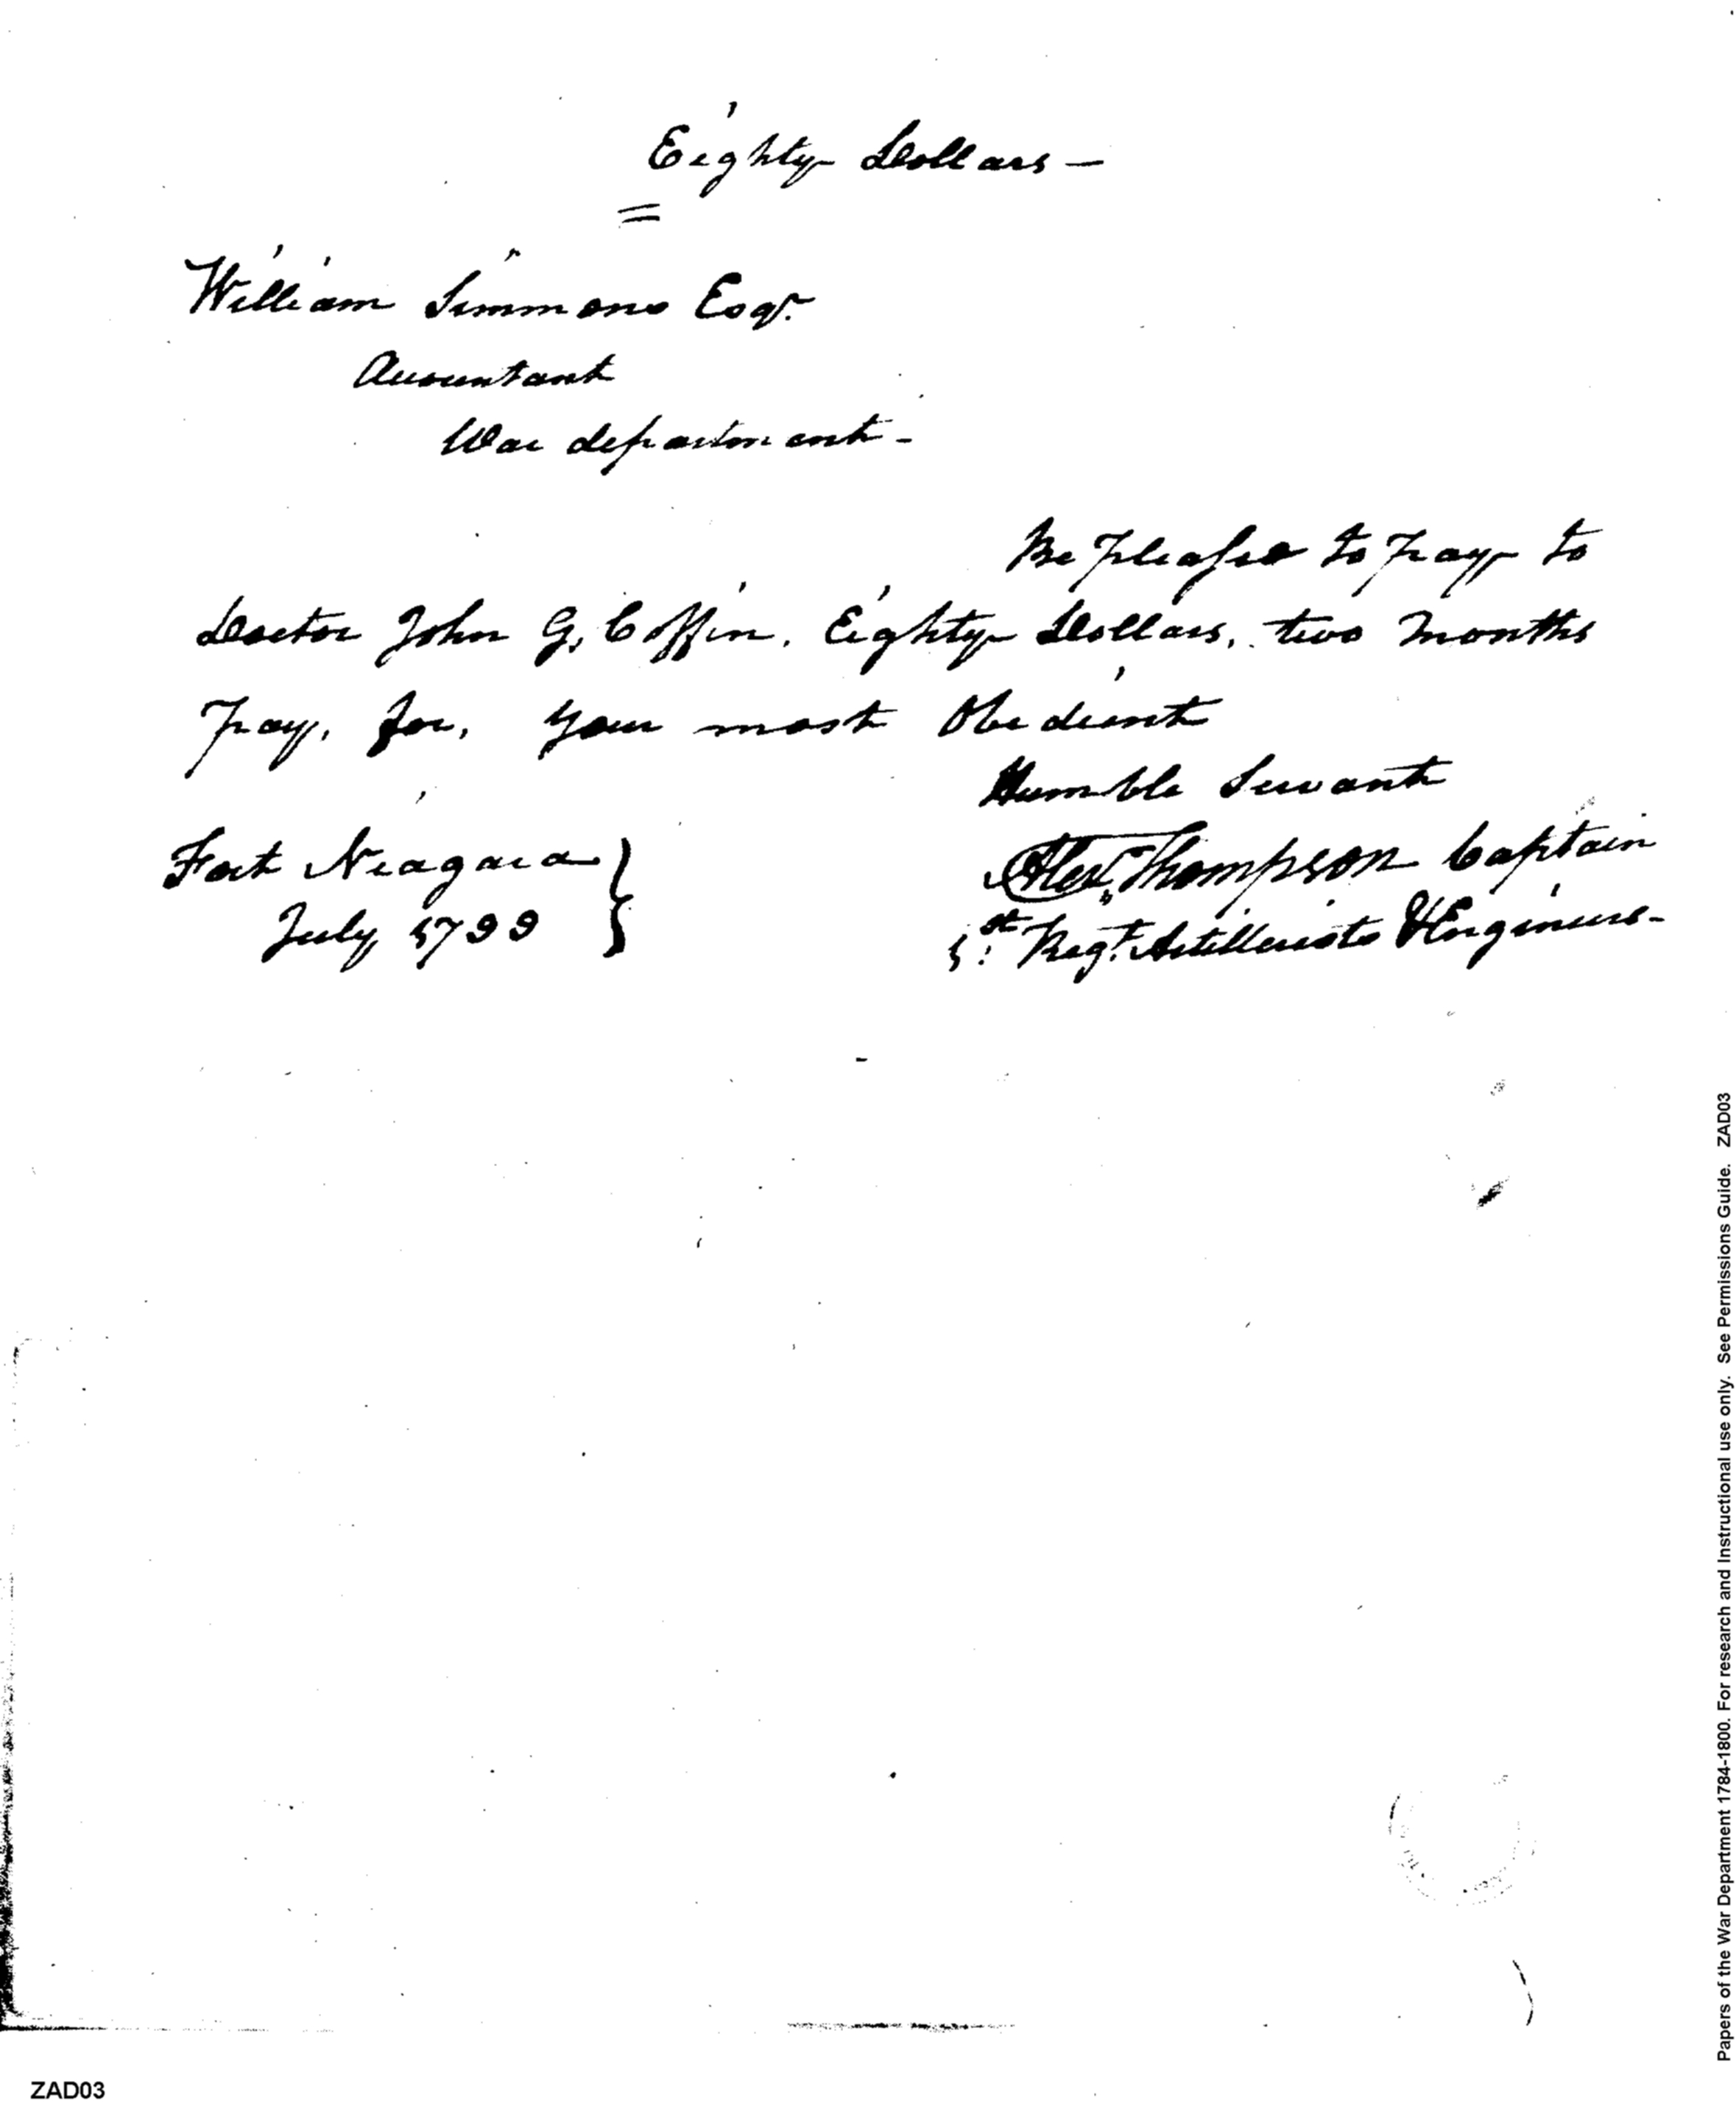 Eighty Dollars —
William Simmons Esqr.
Accountant
War department -
Be pleased to pay to
Doctor John G. Coffin. Eighty Dollars, two months
pay, for, your most Obedient
Humble Servant
Fort Niagara
Alexr. Thompson Captain
July 1799
1st. Regt. Artillerists & Engineers -
Papers of the War Department 1784-1800. For research and Instructional use only. See Permissions Guide. ZAD03
ZAD03